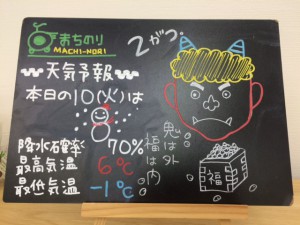 まちのり
MACHI-NORI
2がつ
天気予報
本日の10(火)は
降水確率 70%
最高気温 6℃
最低気温 -1℃
鬼は外
福は内
福